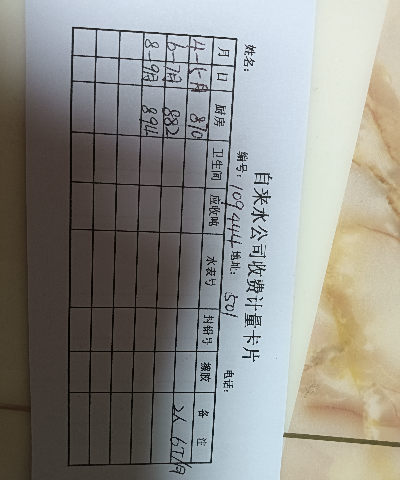 自来水公司收费计量卡片
姓名： 编号：109444 地址：501 电话：
月 日 厨房 卫生间 应收吨 水表号 封钳号 橡胶 备注
4-5月 870
6-7月 882
8-9月 894